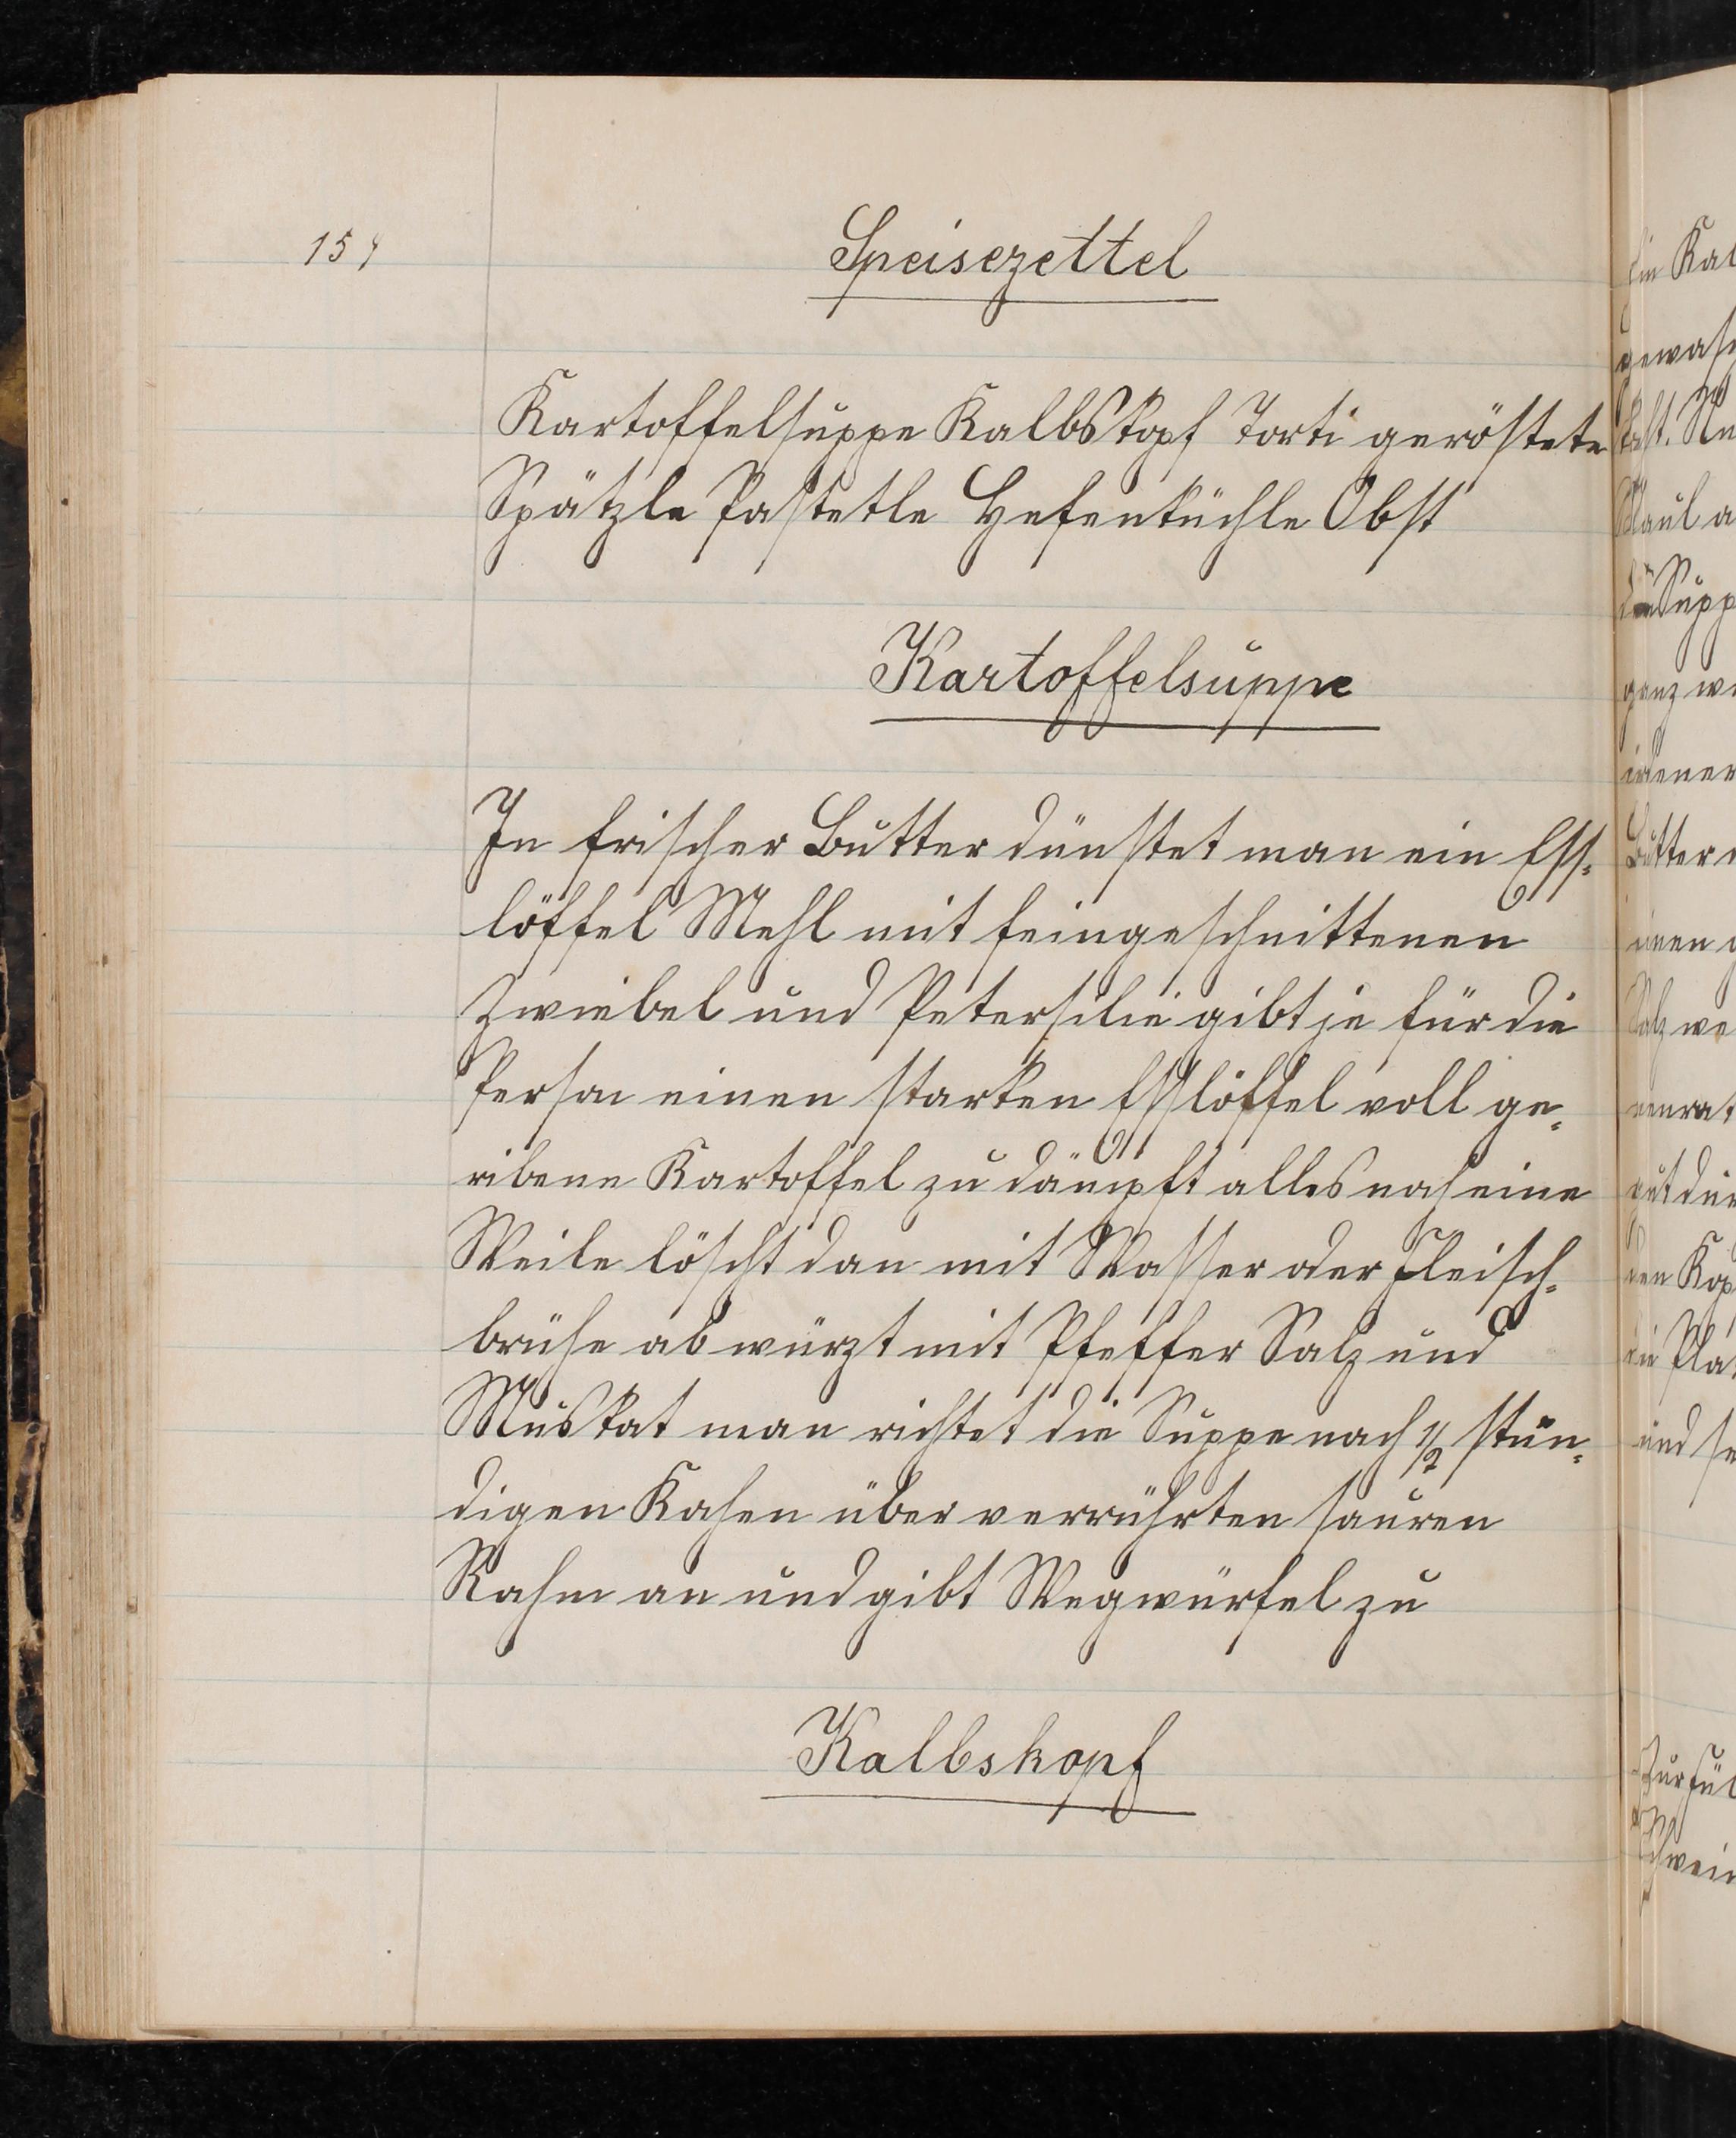 154
Speisezettel
Kartoffelsuppe Kalbskopf Torti geröstete
Spätzle Pastetle Hefenküchle Obst
Kartoffelsuppe
In frischer Butter dünstet man ein Ess-
löffel Mehl mit feingeschnittenen
Zwiebel und Petersilie gibt je für die
Person einen starken Esslöffel voll ge-
ribene Kartoffel zu dämpft alles noch eine
Weile löscht dan mit Wasser oder Fleisch-
brühe ab würzt mit Pfeffer Salz und
Muskat man richtet die Suppe nach 1/2 stün-
digen Kochen über verrührten sauren
Rahm an und gibt Wegwürfel zu
Kalbskopf